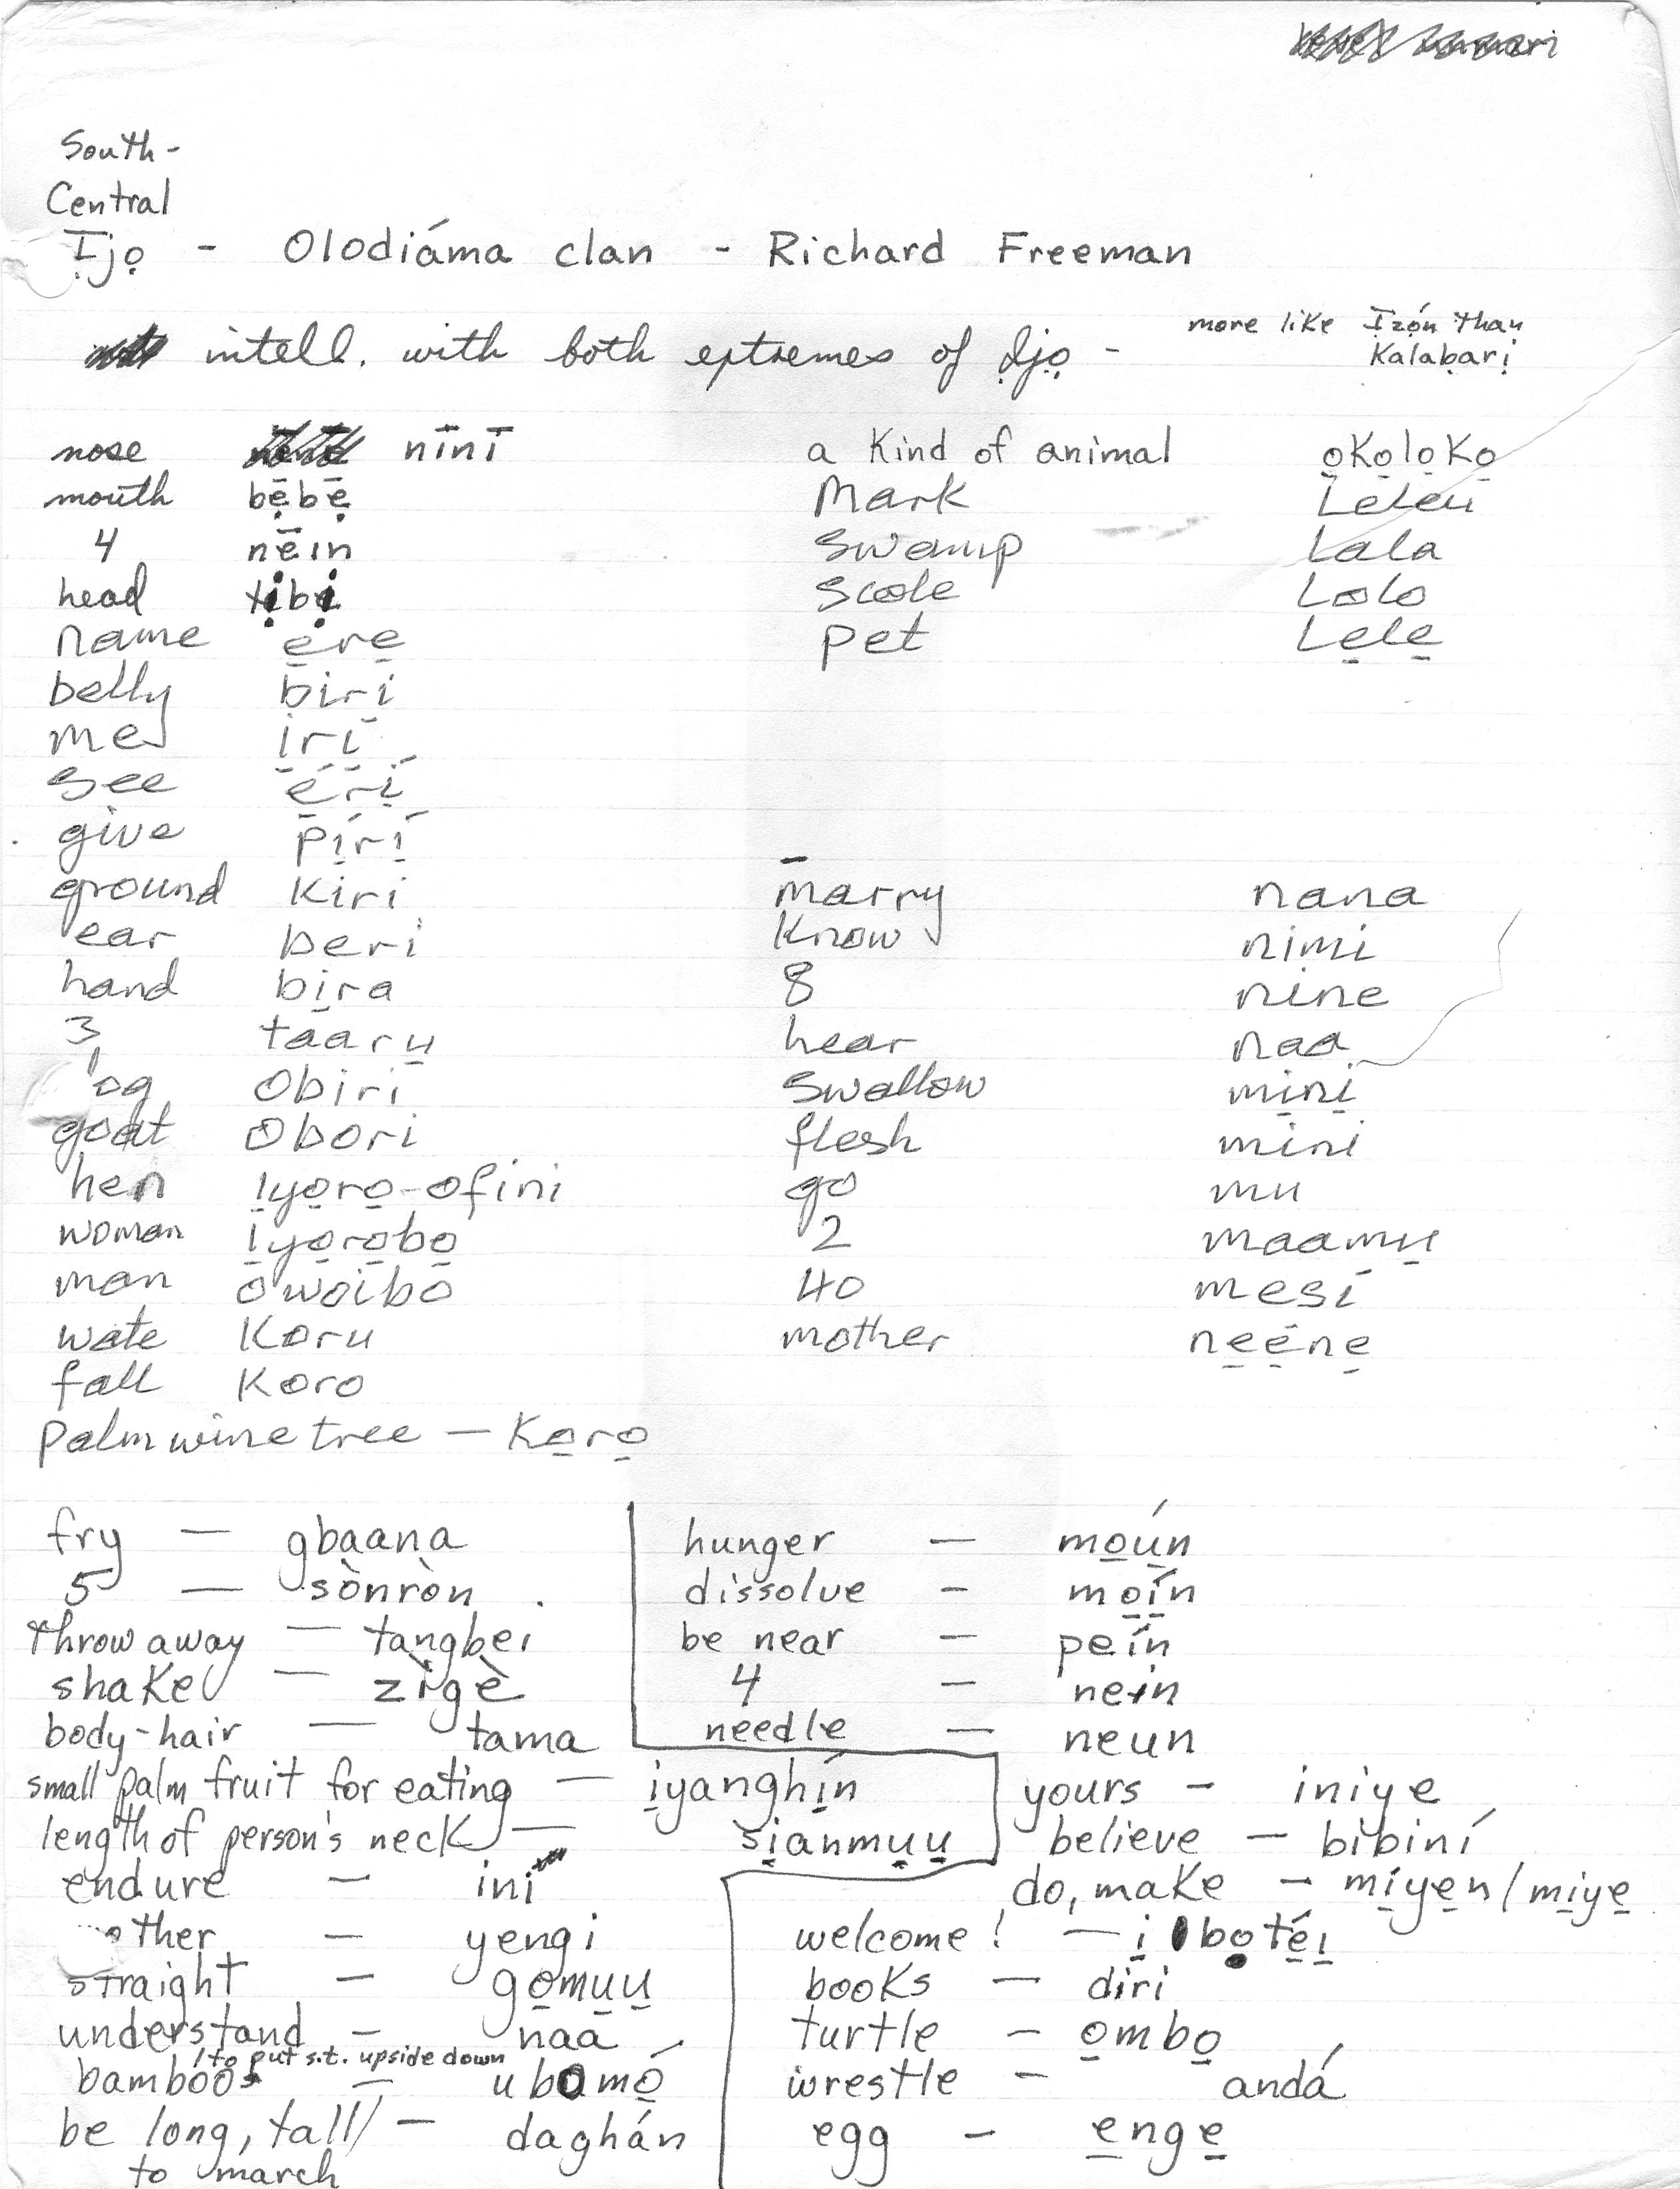 South-
Central
Ịjọ - Olodiáma clan - Richard Freeman
intell. with both extremes of Ịjọ - more like Ịzọ́n than
Kalaḅarị
nose nīnī
mouth bẹ̄bẹ̄
4 nēin
head tịbị
name ẹrẹ
belly ḅiri
me ịrị
see ẹ́rị́
give pị́rị́
ground kiri
ear beri
hand bịra
3 táarụ
og obiri
goat obori
hen ịyọrọ-ofini
woman ịyọrọbọ
man owoibo
wate Koru
fall Koro
palm wine tree — Kọrọ
a kind of animal ọkọlọkọ
Mark Leleu
swamp Lala
scole Lolo
pet Lẹlẹ
marry nana
know nimi
8 nine
hear naa
swallow mịnị
flesh mini
go mu
2 maamụ
40 mesí
mother nẹẹ́nẹ
fry — gbaana
5 — sònròn
throw away — tangbei
shake — zìgè
body-hair — tama
small palm fruit for eating — ịyanghị́n
length of person's neck — sịanmụụ
endure — ini
other — yengi
straight — gọmụụ
understand — naa
/to put s.t. upside down
bamboos — ubọmọ́
be long, tall/ — daghán
to march
hunger — mọụ́n
dissolve — mọị́n
be near — peín
4 — nein
needle — neun
yours — iniye
believe — bibiní
do, make — mịyẹn/mịyẹ
welcome! — ị bọtẹ́ị
books — diri
turtle — ọmbọ
wrestle — andá
egg — ẹngẹ